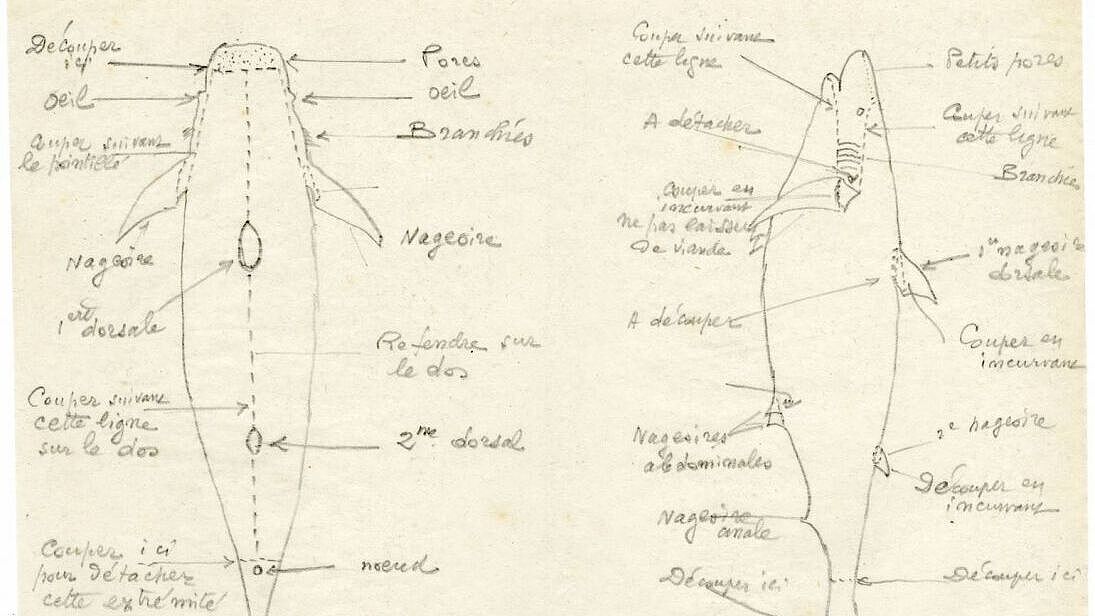 Découper
ici
Oeil
Couper suivant
le pointillé
Nageoire
1ere dorsale
Couper suivant
cette ligne
sur le dos
Couper ici
pour détacher
cette extrémité
Pores
Oeil
Branchies
Nageoire
Refendre sur
le dos
2me dorsal
noeud
Couper suivant
cette ligne
A détacher
Couper en
incurvant
ne pas laisser
de viande
A découper
Nageoires
abdominales
Nageoire
anale
Découper ici
Petits pores
Couper suivant
cette ligne
Branchies
1re nageoire
dorsale
Couper en
incurvant
2e nageoire
Découper en
incurvant
Découper ici